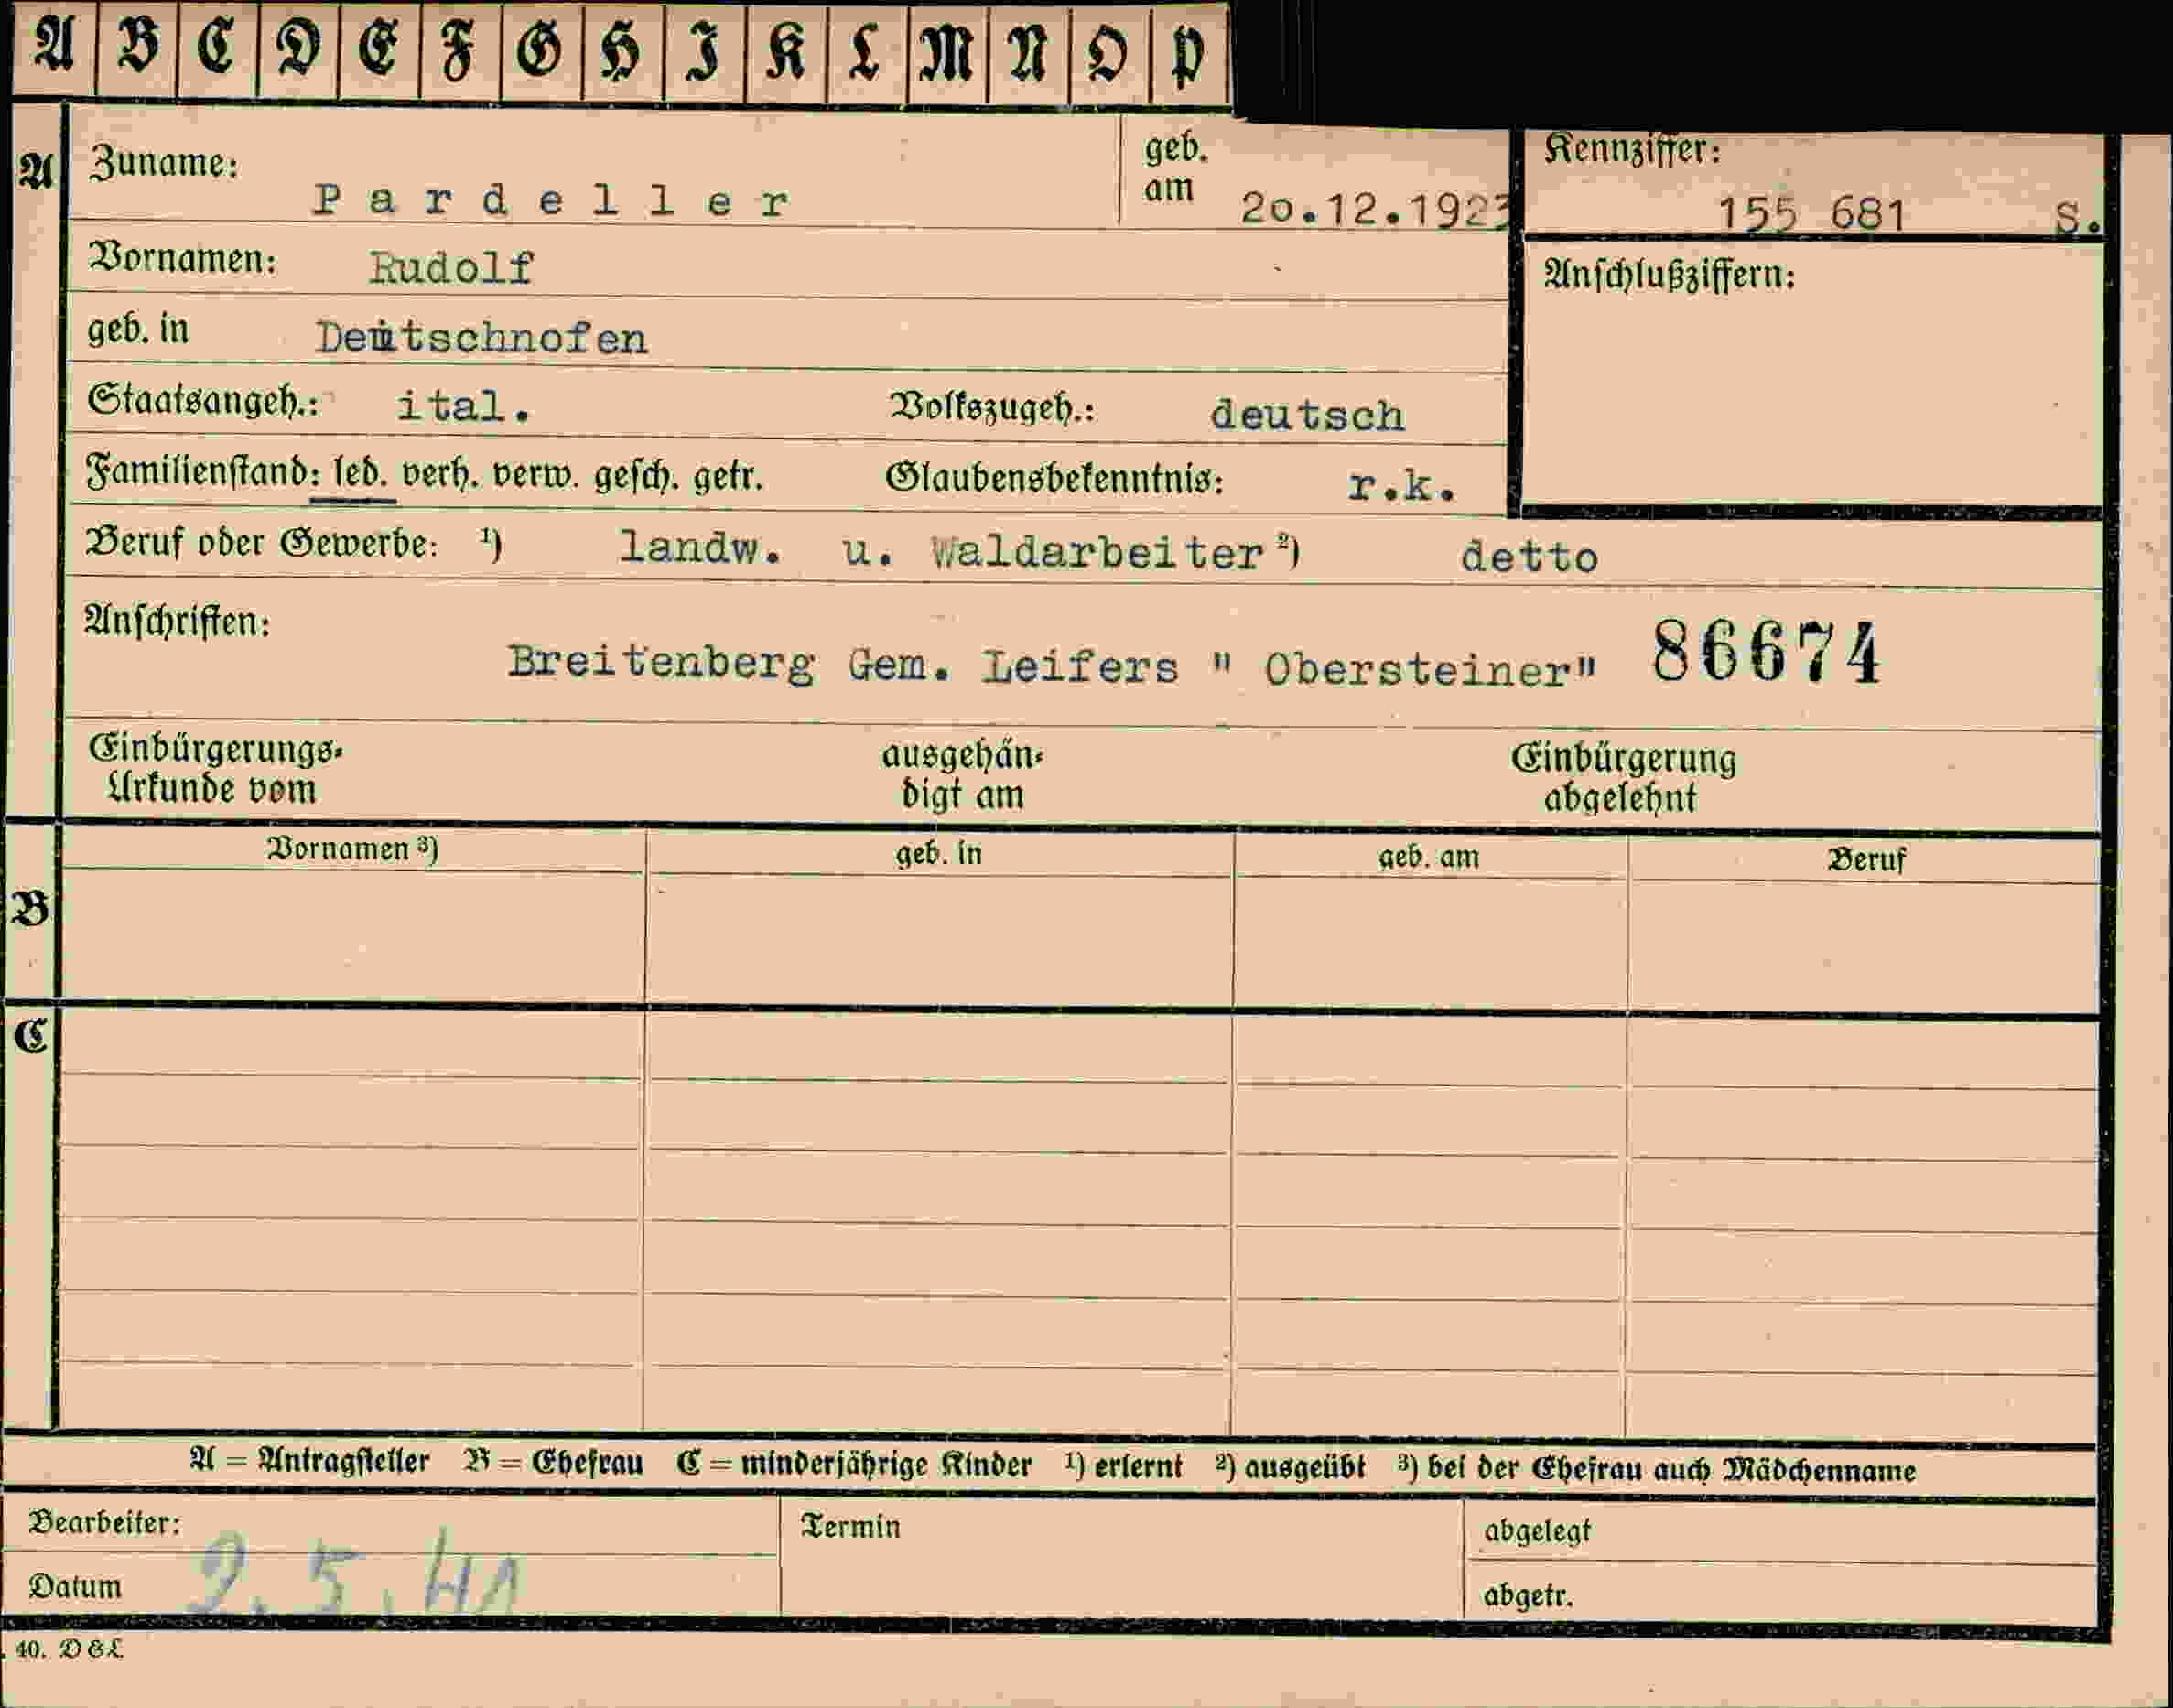 A B C D E F G H I K L M N O P
A Zuname: Pardeller geb. am 20.12.1923 Kennziffer: 155 681 S.
Vornamen: Rudolf Anschlußziffern:
geb. in Deutschnofen
Staatsangeh.: ital. Volkszugeh.: deutsch
Familienstand: led. verh. verw. gesch. getr. Glaubensbekenntnis: r.k.
Beruf oder Gewerbe: ¹) landw. u. Waldarbeiter ²) detto
Anschriften: Breitenberg Gem. Leifers " Obersteiner" 86674
Einbürgerungs- ausgehän- Einbürgerung
Urkunde vom digt am abgelehnt
Vornamen ³) geb. in geb. am Beruf
B
C
A = Antragsteller B = Ehefrau C = minderjährige Kinder ¹) erlernt ²) ausgeübt ³) bei der Ehefrau auch Mädchenname
Bearbeiter: Termin abgelegt
Datum 2.5.41 abgetr.
40. DGL